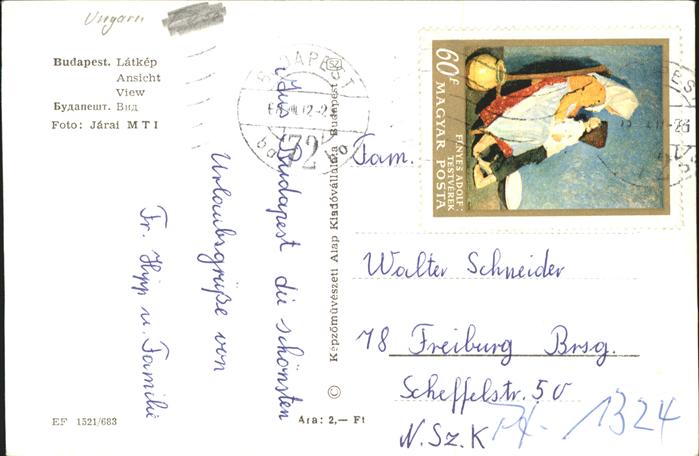 Ungarn
Budapest. Látkép
Ansicht
View
Будапешт. Вид
Foto: Járai MTI
Aus Budapest die schönsten
Urlaubsgrüße von
Fr. Hipp u. Familie
EF 1521/683
Ára: 2,— Ft
© Képzőművészeti Alap Kiadóvállalata Budapest
BUDAPEST
72
60f
MAGYAR POSTA
FÉNYES ADOLF:
TESTVÉREK
Fam.
Walter Schneider
78 Freiburg Brsg.
Scheffelstr. 50
N.Sz.K
1324